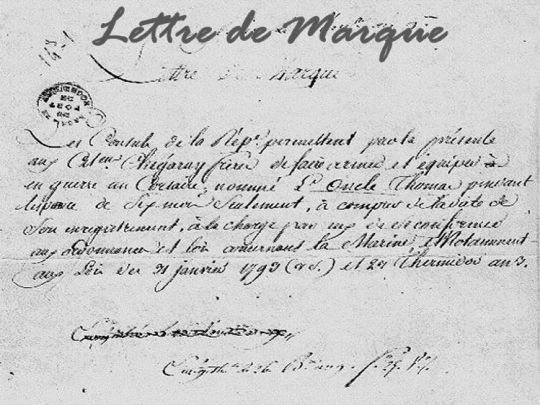 Lettre de Marque
Lettre de Marque
Les Consuls de la Rép.e permettent par la présente
aux Citen. Chégaray frère de faire armer et équiper
en guerre un Corsaire, nommé L'Oncle Thomas pendant
l'espace de Six mois Seulement, à compter de la date de
Son enregistrement, à la charge par eux de se conformer
aux ordonnances et loix concernant la Marine, et Notamment
aux Loix des 31 janvier 1793 (v.s.) et 23 Thermidor an 3.